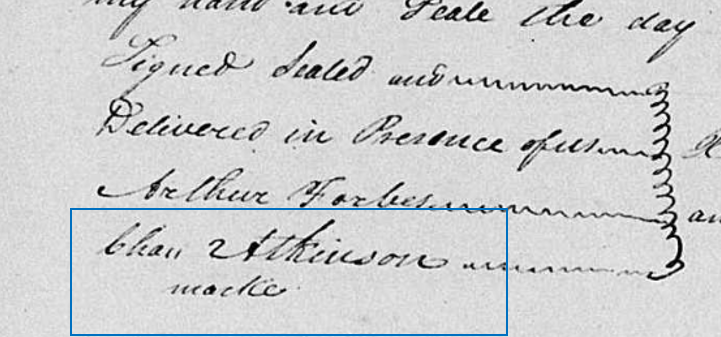 my hand and Seale the day
Signed Sealed and
Delivered in Presence of us
Arthur Forbes
Chan 2 Atkinson
marke